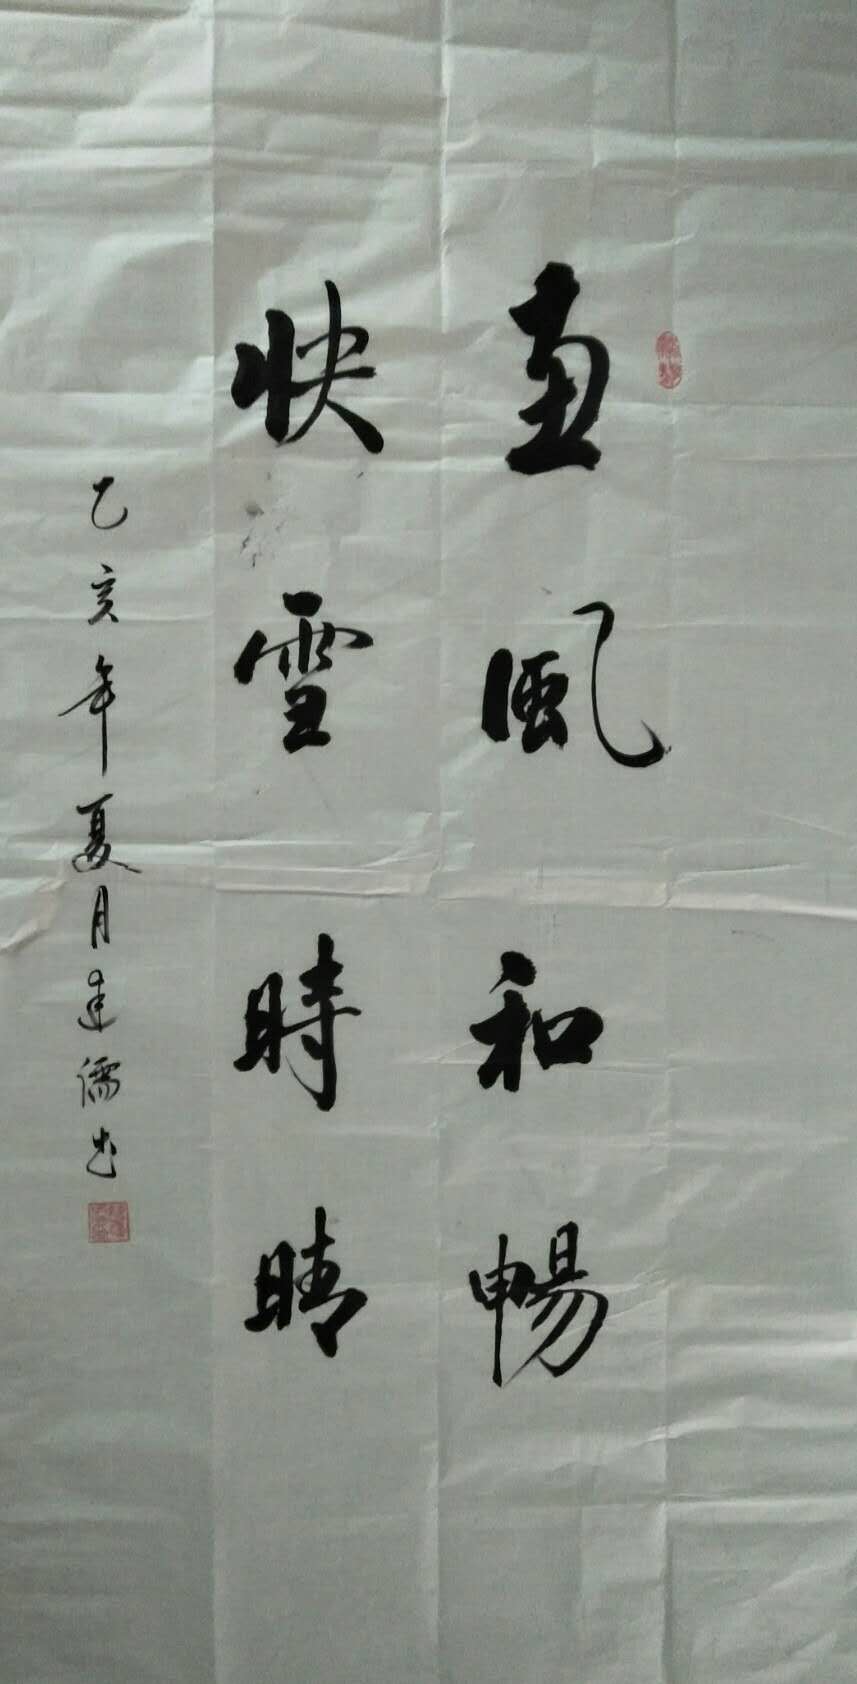 惠風和暢
快雪時晴
乙亥年夏月建儒书